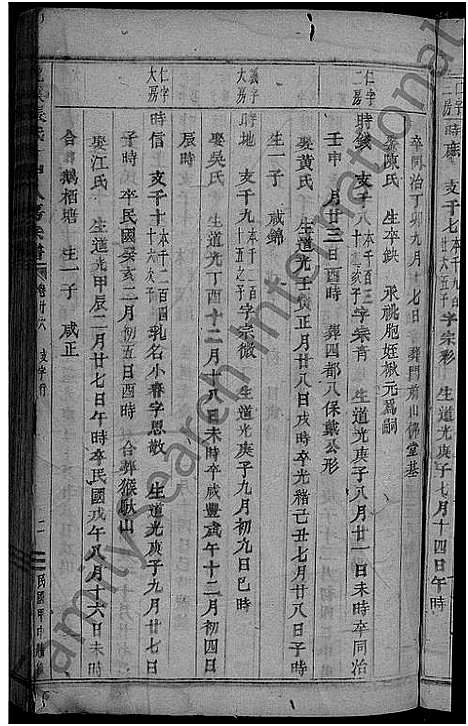 二房 時 支千七 本千九百 廿六五子 字宗彩 生道光庚子七月十四日午時
卒同治丁卯九月十七日 葬門前山佛堂基
娶陳氏 生卒缺 承祧胞姪楸元爲嗣
仁字二房 時 支千八 本千百三 字宗青 生道光庚子八月廿一日未時卒同治
壬申 月廿三日酉時 葬四都八保戴公形
娶黃氏 生道光壬寅正月廿八日戌時卒光緒己丑七月廿八日子時
生一子 咸錦
義字大房 時地 支千九 本千百 十五之子 字宗徵 生道光庚子九月初九日巳時
娶吳氏 生道光丁酉十二月十八日未時卒咸豐戊午十二月初四日
辰時
仁字大房 時信 支千十 本千二百四 十六次子 乳名小春字思敬 生道光庚子九月廿七日
子時 卒民國癸亥二月初五日酉時 合葬猴歇山
娶江氏 生道光甲辰二月廿七日午時卒民國戊午八月十六日未時
合 鵝栖塘 生一子 咸正
宗譜 卷廿六 支字行 二 民國甲申
FamilySearch International